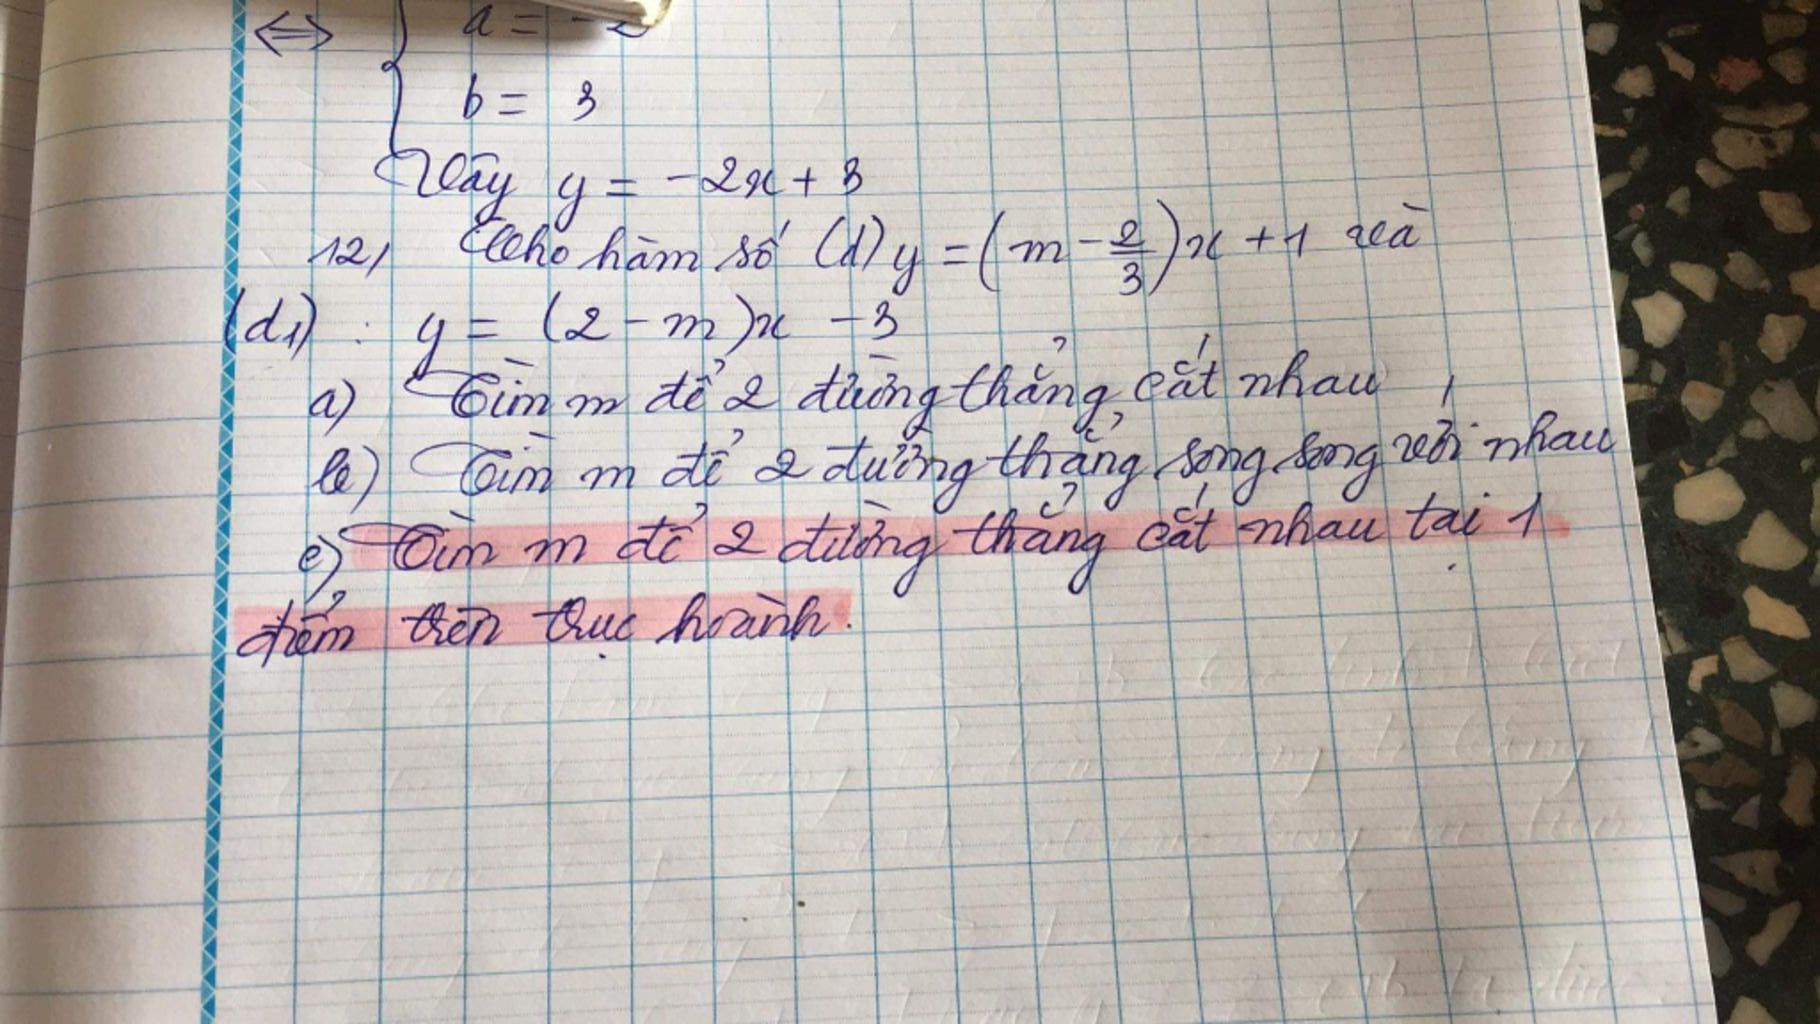 ⇔ { a = -2
b = 3
Vậy y = -2x + 3
12, Cho hàm số (d) y = (m - 2/3)x + 1 và
(d1) : y = (2 - m)x - 3
a) Tìm m để 2 đường thẳng cắt nhau
b) Tìm m để 2 đường thẳng song song với nhau
c) Tìm m để 2 đường thẳng cắt nhau tại 1
điểm trên trục hoành.